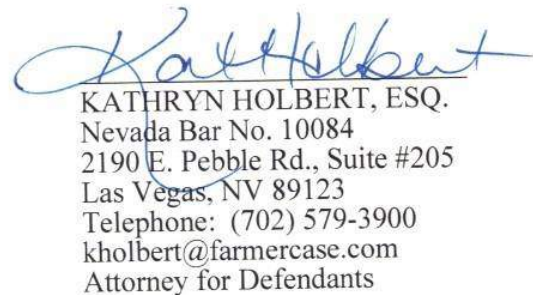 Kat Holbert
KATHRYN HOLBERT, ESQ.
Nevada Bar No. 10084
2190 E. Pebble Rd., Suite #205
Las Vegas, NV 89123
Telephone: (702) 579-3900
kholbert@farmercase.com
Attorney for Defendants